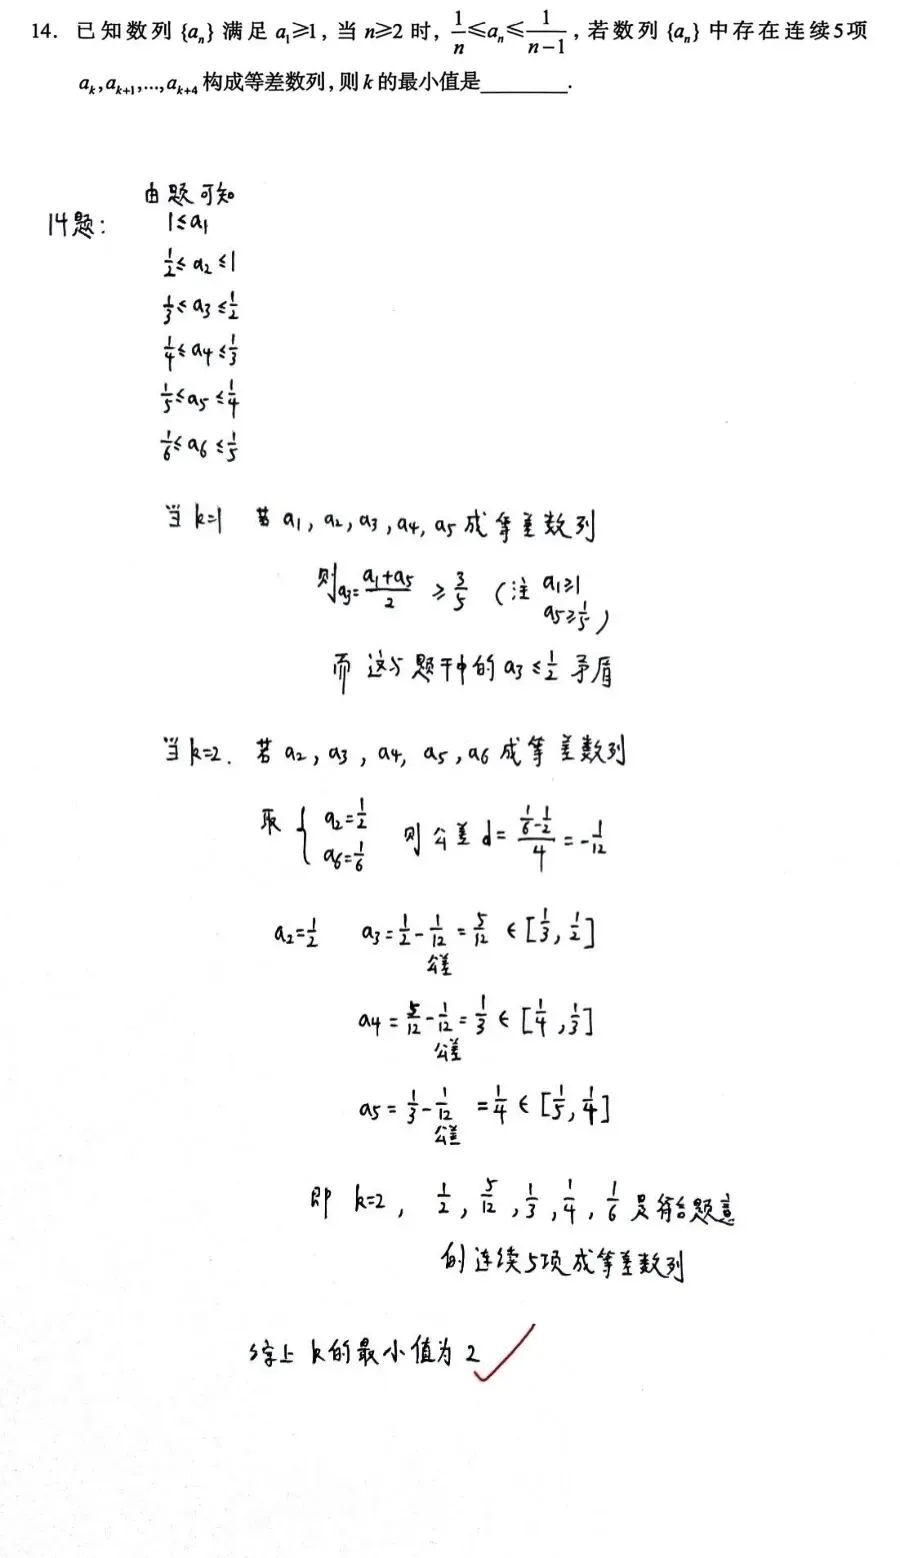 14. 已知数列{aₙ}满足 a₁≥1, 当 n≥2 时, 1/n≤aₙ≤1/(n-1), 若数列{aₙ}中存在连续5项
aₖ,aₖ₊₁,…,aₖ₊₄ 构成等差数列, 则 k 的最小值是________.
由题可知
14题:
1≤a₁
1/2≤a₂≤1
1/3≤a₃≤1/2
1/4≤a₄≤1/3
1/5≤a₅≤1/4
1/6≤a₆≤1/5
当 k=1 若 a₁, a₂, a₃, a₄, a₅ 成等差数列
则 a₃=(a₁+a₅)/2 ≥ 3/5 (注 a₁≥1
a₅≥1/5)
而这与题干中的 a₃≤1/2 矛盾
当 k=2. 若 a₂, a₃, a₄, a₅, a₆ 成等差数列
取 { a₂=1/2
a₆=1/6 则 公差 d=(1/6-1/2)/4=-1/12
a₂=1/2 a₃=1/2-1/12=5/12 ∈[1/3,1/2]
公差
a₄=5/12-1/12=1/3 ∈[1/4,1/3]
公差
a₅=1/3-1/12=1/4 ∈[1/5,1/4]
公差
即 k=2, 1/2, 5/12, 1/3, 1/4, 1/6 是符合题意
的连续5项成等差数列
综上 k的最小值为 2